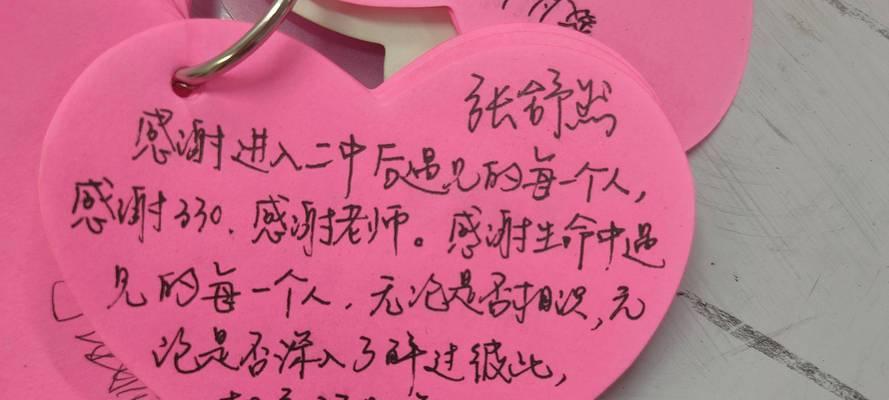 张舒然
感谢进入二中后遇见的每一个人，
感谢330. 感谢老师。感谢生命中遇
见的每一个人，无论是否相识，无
论是否深入了解过彼此，